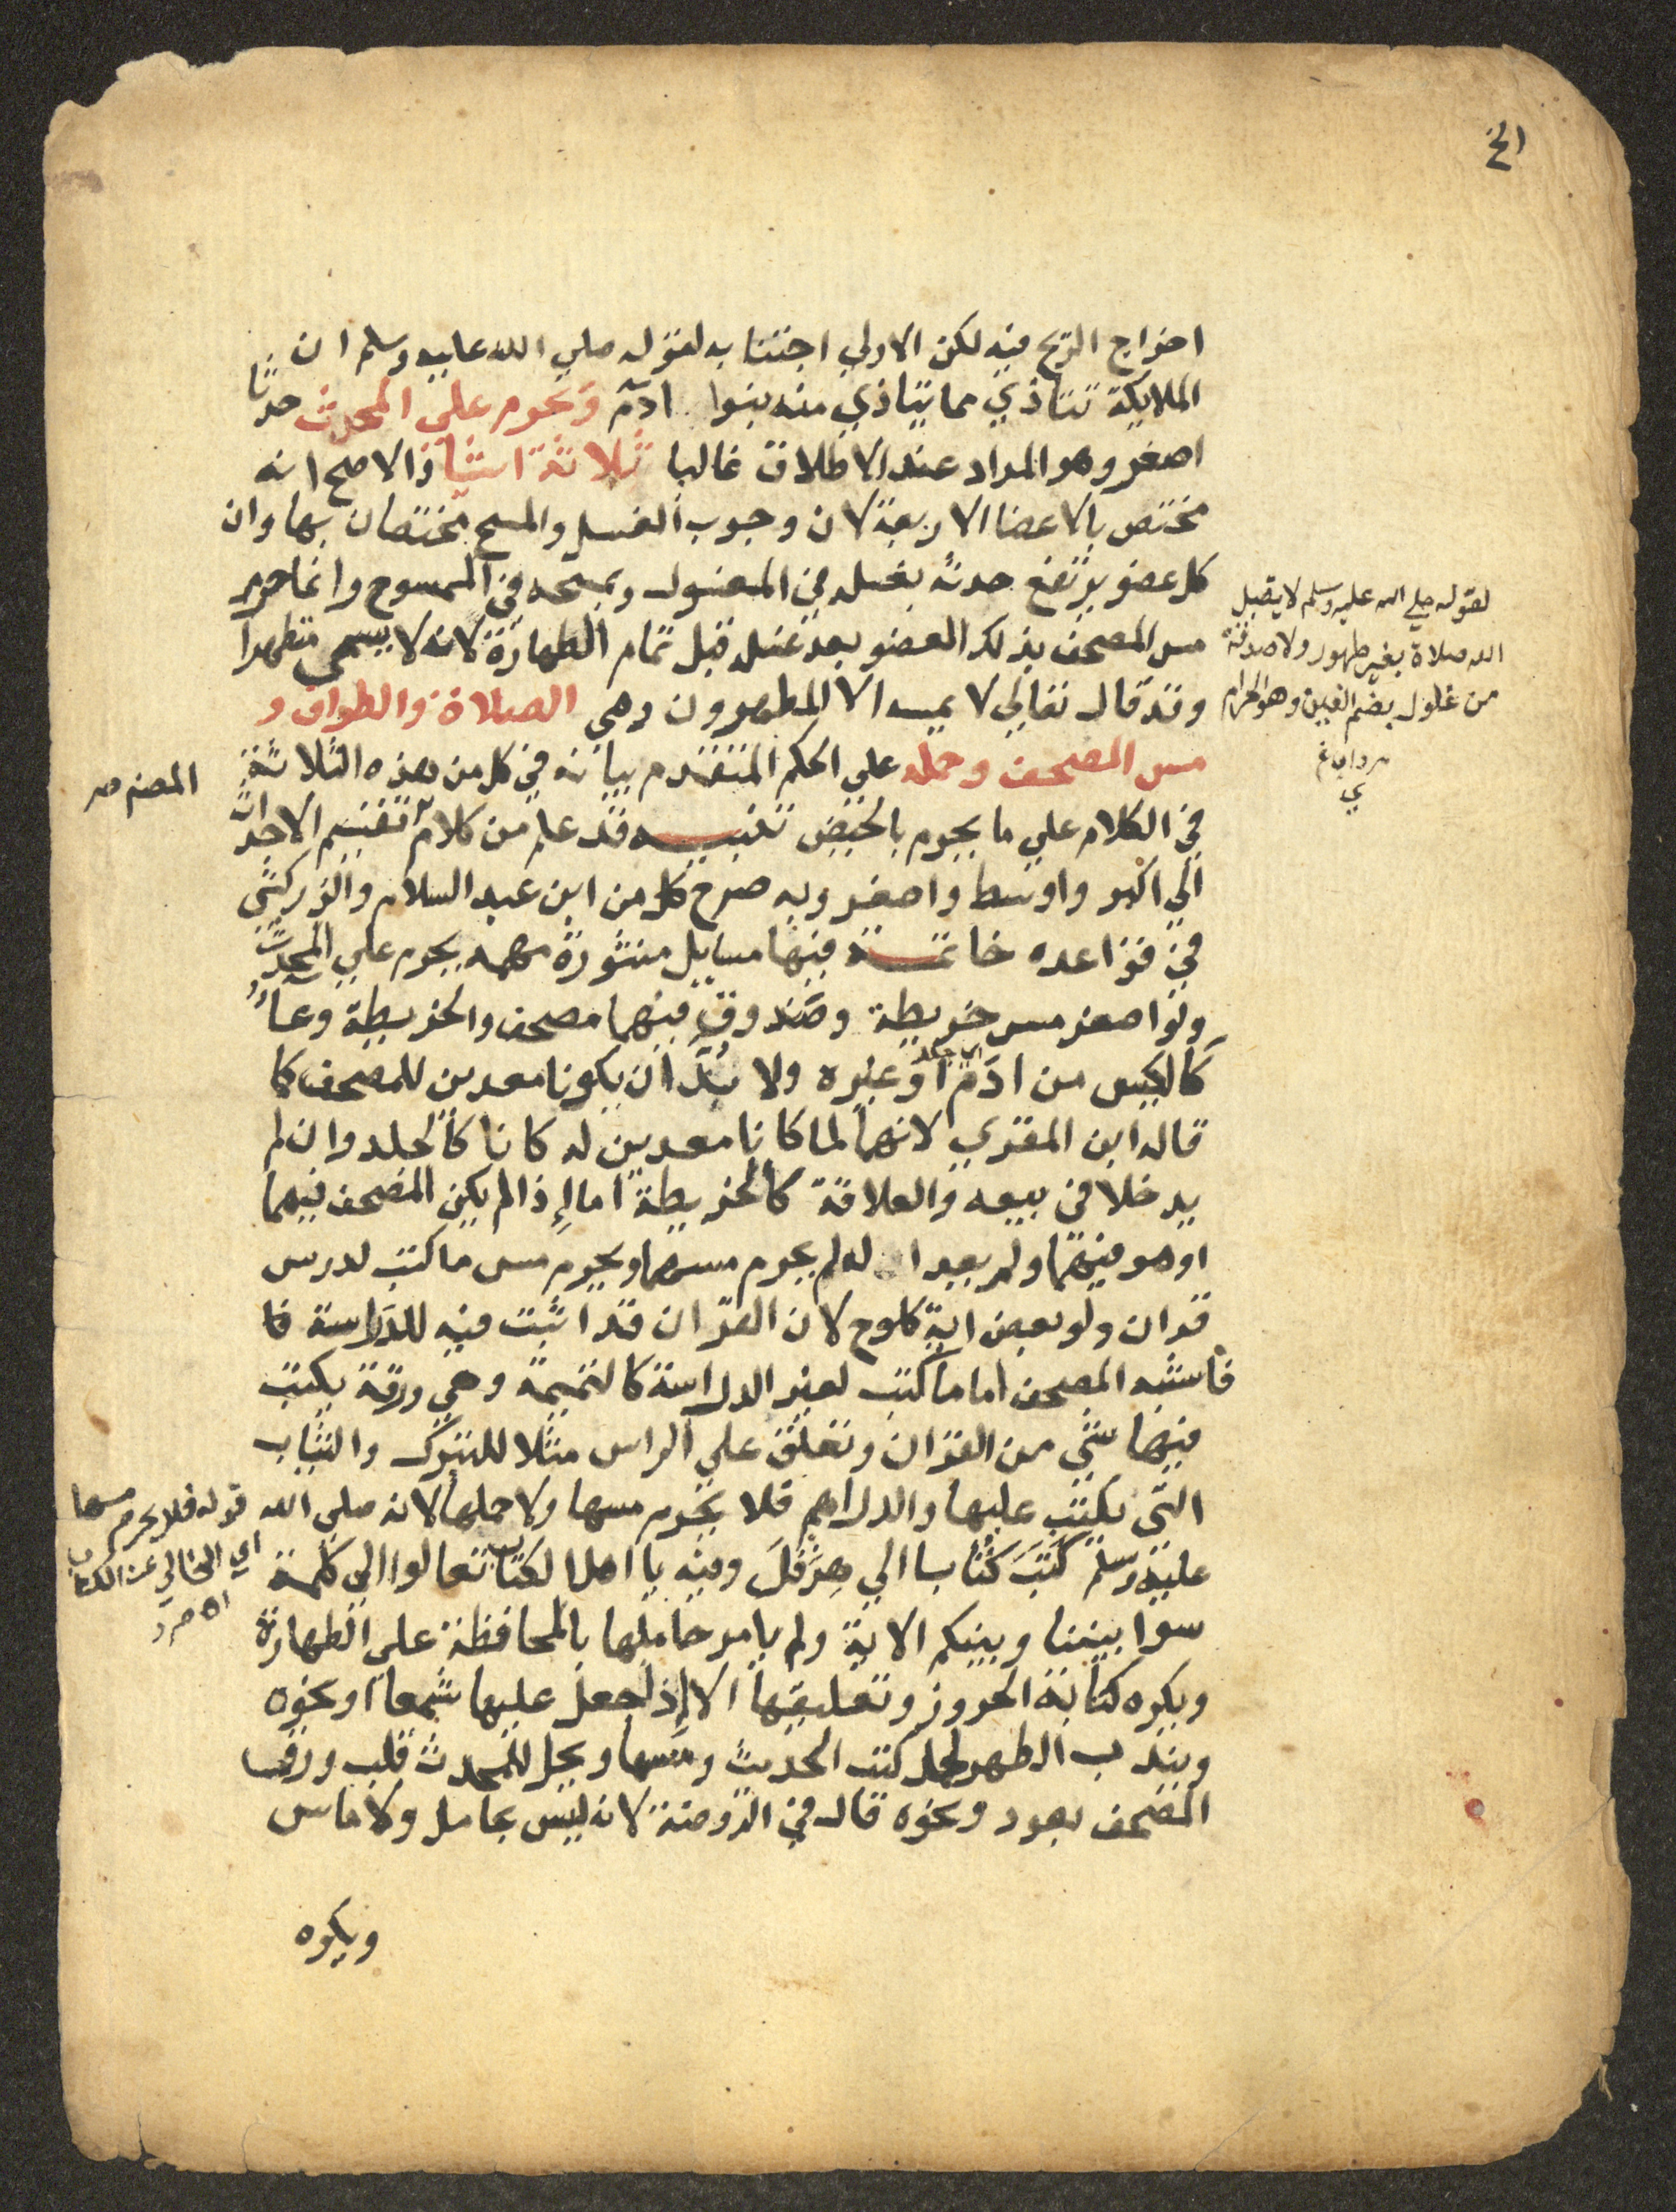 الخ
اخراج الريح فيه لكن الاولي اجتنابه لقوله صلي الله عليه وسلم ان
الملايكة تتاذي مما يتاذي منه بنوا ادم ويحرم علي المحدث حدثا
اصغر وهو المراد عند الاطلاق غالبا ثلاثة اشيا والاصح انه
مختص بالاعضا الاربعة لان وجوب الغسل والمسح مختصان بها وان
كل عضو يرتفع حدثه بغسله في المغسول وبمسحه في الممسوح وانما حرم
مس المصحف بذلك العضو بعد غسله قبل تمام الطهارة لانه لا يسمي متطهرا
وقد قال تعالي لا يمسه الا المطهرون وهي الصلاة والطواف و
مس المصحف وحمله علي الحكم المتقدم بيانه في كل من هذه الثلاثة
في الكلام علي ما يحرم بالحيض تنبيه قد علم من كلام تقسيم الاحداث
الي اكبر واوسط واصغر وبه صرح كل من ابن عبد السلام والزركشي
في قواعده خاتمة فيها مسايل منثورة مهمه يحرم علي المحدث
ولو اصغر مس خريطة وصندوق فيهما مصحف والخريطة وعاء
كالكيس من ادم او غيره ولا بد ان يكونا معدين للمصحف كما
قاله ابن المقري لانهما لما كانا معدين له كانا كالجلد وان لم
يدخلا في بيعه والعلاقة كالخريطة اما إذا لم يكن المصحف فيهما
او هو فيهما ولم يعدا له لم يحرم مسهما ويحرم مس ما كتب لدرس
قران ولو بعض اية كلوح لان القران قد اثبت فيه للدراسة فا
فاشبه المصحف اما ما كتب لغير الدراسة كالتميمة وهي ورقة يكتب
فيها شي من القران وتعلق علي الراس مثلا للتبرك والثياب
التي يكتب عليها والدراهم فلا يحرم مسها ولا حملها لانه صلي الله
عليه وسلم كتب كتابا الي هرقل وفيه يا اهل الكتاب تعالوا الي كلمة
سوا بيننا وبينكم الاية ولم يامر حاملها بالمحافظة علي الطهارة
ويكره كتابة الحروز وتعليقها الا إذا جعل عليها شمعا او نحوه
ويندب الطهر لحمل كتب الحديث ومسها ويحل للمحدث قلب ورق
المصحف بعود ونحوه قال في الروضة لانه ليس بحامل ولا ماس
ويكره
لقوله صلي الله عليه وسلم لا يقبل
الله صلاة بغير طهور ولا صدقة
من غلول بضم الغين وهو الحرام
المصنف
قوله فلا يحرم مسها
اي الخالي عن الكتاب